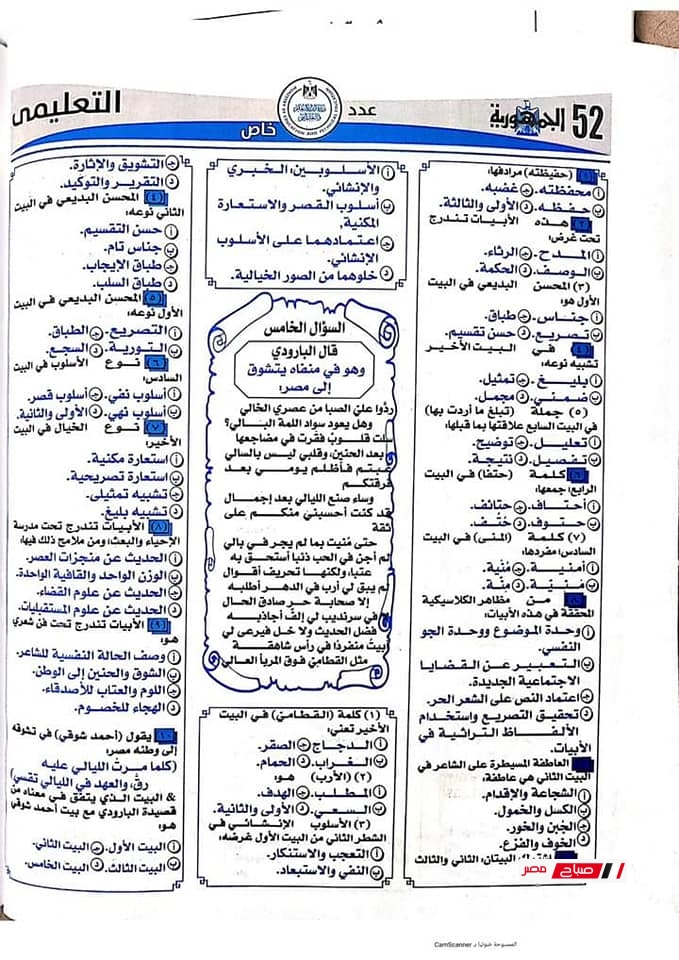 52 الجمهورية
عدد
خاص
التعليمى
(حفيظته) مرادفها:
أ محفظته. ج غضبه.
ب حفظه. د الأولى والثالثة.
هذه الأبيات تندرج
تحت غرض:
أ المدح. ج الرثاء.
ب الوصف. د الحكمة.
(٣) المحسن البديعي في البيت
الأول هو:
أ جناس. ج طباق.
ب تصريع. د حسن تقسيم.
(٤) في البيت الأخير
تشبيه نوعه:
أ بليغ. ج تمثيل.
ب ضمني. د مجمل.
(٥) جملة (تبلغ ما أردت بها)
في البيت السابع علاقتها بما قبلها:
أ تعليل. ج توضيح.
ب تفصيل. د نتيجة.
كلمة (حتفا) في البيت
الرابع، جمعها:
أ أحتاف. ج حتائف.
ب حتوف. د حُتف.
(٧) كلمة (المنى) في البيت
السادس، مفردها:
أ أمنية. ج مُنية.
ب مَنيّة. د مِنّة.
من مظاهر الكلاسيكية
المحققة في هذه الأبيات:
أ وحدة الموضوع ووحدة الجو
النفسي.
ب التعبير عن القضايا
الاجتماعية الجديدة.
ج اعتماد النص على الشعر الحر.
د تحقيق التصريع واستخدام
الألفاظ التراثية في
الأبيات.
العاطفة المسيطرة على الشاعر في
البيت الثاني هي عاطفة:
أ الشجاعة والإقدام.
ب الكسل والخمول.
ج الجُبن والخور.
د الخوف والفزع.
البيتان: الثاني والثالث
أ الأسلوبين: الخبري
والإنشائي.
ب أسلوب القصر والاستعارة
المكنية.
ج اعتمادهما على الأسلوب
الإنشائي.
د خلوهما من الصور الخيالية.
السؤال الخامس
قال البارودي
وهو في منفاه يتشوق
إلى مصر:
ردُّوا عليّ الصبا من عصري الخالي
وهل يعود سواد اللمة البالي؟
سلت قلوبٌ فقرت في مضاجعها
بعد الحنين، وقلبي ليس بالسالي
غبتم فأظلم يومي بعد
فرقتكم
وساء صنع الليالي بعد إجمال
قد كنت أحسبني منكم على
ثقة
حتى مُنيت بما لم يجر في بالي
لم أجن في الحب ذنبا أستحق به
عتبا، ولكنها تحريف أقوال
لم يبق لي أرب في الدهر أطلبه
إلا صحابة حر صادق الحال
في سرنديب لي إلف أجاذبه
فضل الحديث ولا خل فيرعى لي
أبيت منفردًا في رأس شاهقة
مثل القطامي فوق المربأ العالي
(١) كلمة (القطامي) في البيت
الأخير تعني:
أ الدجاج ج الصقر.
ب الغراب. د الحمام.
(٢) (الأرب) هو:
أ المطلب. ج الهدف.
ب السعي. د الأولى والثانية.
(٣) الأسلوب الإنشائي في
الشطر الثاني من البيت الأول غرضه:
أ التعجب والاستنكار.
ب النفي والاستبعاد.
ج التشويق والإثارة.
د التقرير والتوكيد.
(٤) المحسن البديعي في البيت
الثاني نوعه:
أ حسن التقسيم.
ب جناس تام.
ج طباق الإيجاب.
د طباق السلب.
(٥) المحسن البديعي في البيت
الأول نوعه:
أ التصريع. ج الطباق.
ب التورية. د السجع.
(٦) نوع الأسلوب في البيت
السادس:
أ أسلوب نفي. ج أسلوب قصر.
ب أسلوب نهي. د الأولى والثانية.
(٧) نوع الخيال في البيت
الأخير:
أ استعارة مكنية.
ب استعارة تصريحية.
ج تشبيه تمثيلى.
د تشبيه بليغ.
(٨) الأبيات تندرج تحت مدرسة
الإحياء والبعث؛ ومن ملامح ذلك فيها:
أ الحديث عن منجزات العصر.
ب الوزن الواحد والقافية الواحدة.
ج الحديث عن علوم الفضاء.
د الحديث عن علوم المستقبليات.
(٩) الأبيات تندرج تحت فن شعري
هو:
أ وصف الحالة النفسية للشاعر.
ب الشوق والحنين إلى الوطن.
ج اللوم والعتاب للأصدقاء.
د الهجاء للخصوم.
١٠ يقول (أحمد شوقي) في تشوقه
إلى وطنه مصر:
(كلما مرت الليالي عليه
رقَّ، والعهد في الليالي تقسي)
& البيت الذي يتفق في معناه من
قصيدة البارودي مع بيت أحمد شوقي
هو:
أ البيت الأول. ج البيت الثاني.
ب البيت الثالث. د البيت الخامس.
صباح مصر
الممسوحة ضوئيا بـ CamScanner